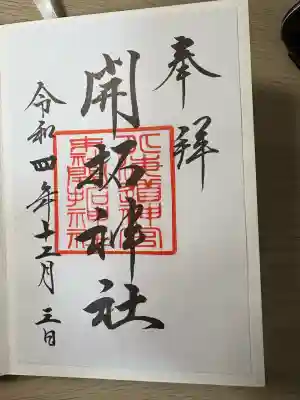 奉拝
開拓神社
北海道神宮
末開拓神社
令和四年十二月三日